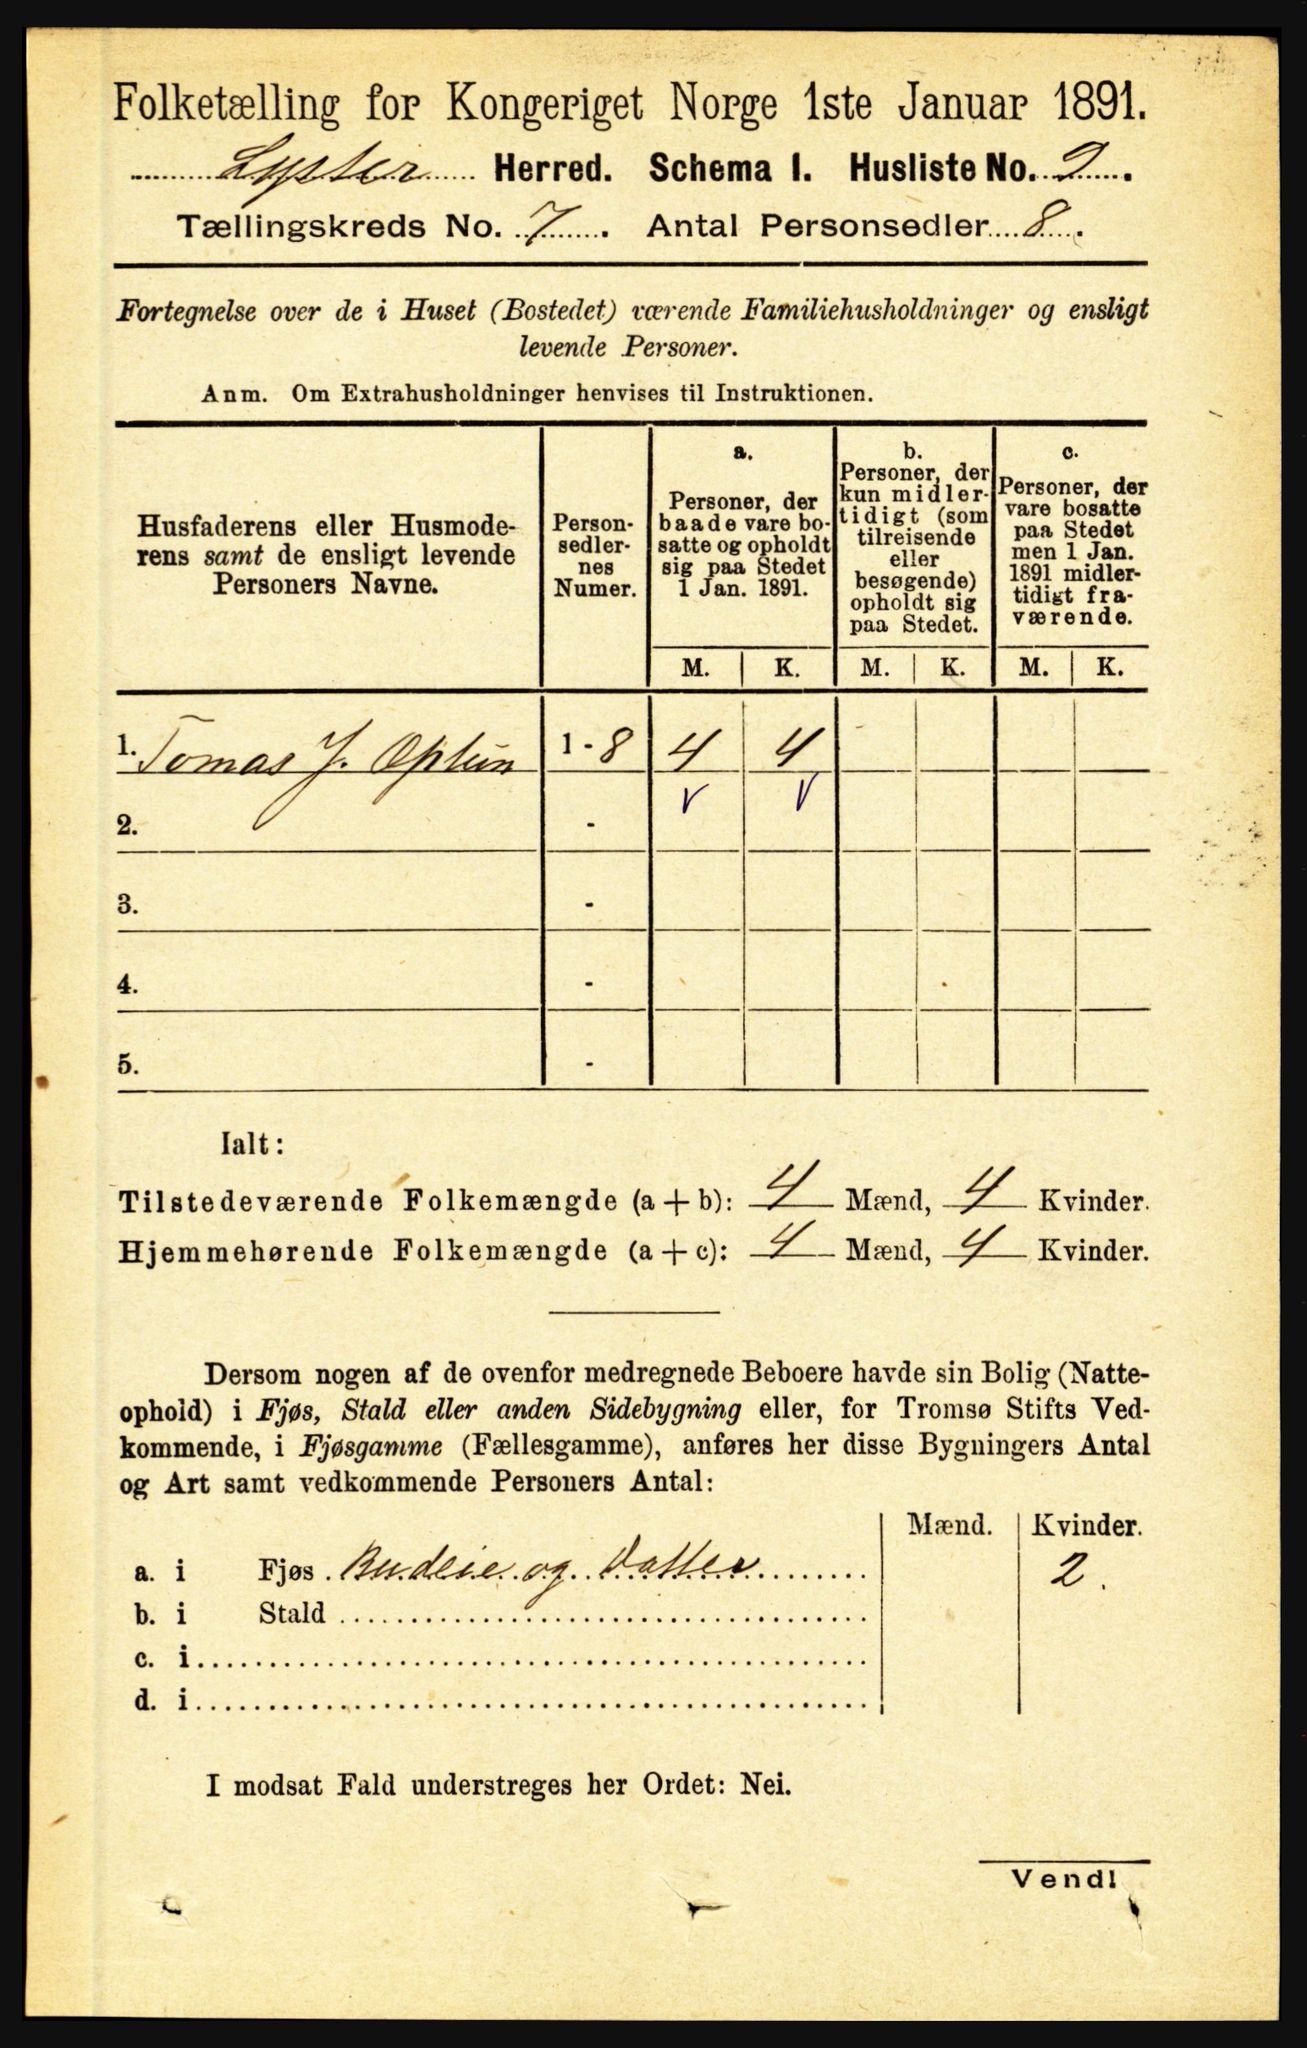 Folketælling for Kongeriget Norge 1ste Januar 1891.
Lyster Herred. Schema I. Husliste No. 2.
Tællingskreds No. 7. Antal Personsedler 8.
Fortegnelse over de i Huset (Bostedet) værende Familiehusholdninger og ensligt
levende Personer.
Anm. Om Extrahusholdninger henvises til Instruktionen.
Husfaderens eller Husmode-
rens samt de ensligt levende
Personers Navne.
Person-
sedler-
nes
Numer.
a.
Personer, der
baade vare bo-
satte og opholdt
sig paa Stedet
1 Jan. 1891.
b.
Personer, der
kun midler-
tidigt (som
tilreisende
eller
besøgende)
opholdt sig
paa Stedet.
c.
Personer, der
vare bosatte
paa Stedet
men 1 Jan.
1891 midler-
tidigt fra-
værende.
M. K. M. K. M. K.
1. Tomas J. Optun 1 - 8 4 4
2. -
3. -
4. -
5. -
Ialt:
Tilstedeværende Folkemængde (a + b): 4 Mænd, 4 Kvinder.
Hjemmehørende Folkemængde (a + c): 4 Mænd, 4 Kvinder.
Dersom nogen af de ovenfor medregnede Beboere havde sin Bolig (Natte-
ophold) i Fjøs, Stald eller anden Sidebygning eller, for Tromsø Stifts Ved-
kommende, i Fjøsgamme (Fællesgamme), anføres her disse Bygningers Antal
og Art samt vedkommende Personers Antal:
Mænd. Kvinder.
a. i Fjøs. Budeie og Datter 2.
b. i Stald
c. i
d. i
I modsat Fald understreges her Ordet: Nei.
Vend!